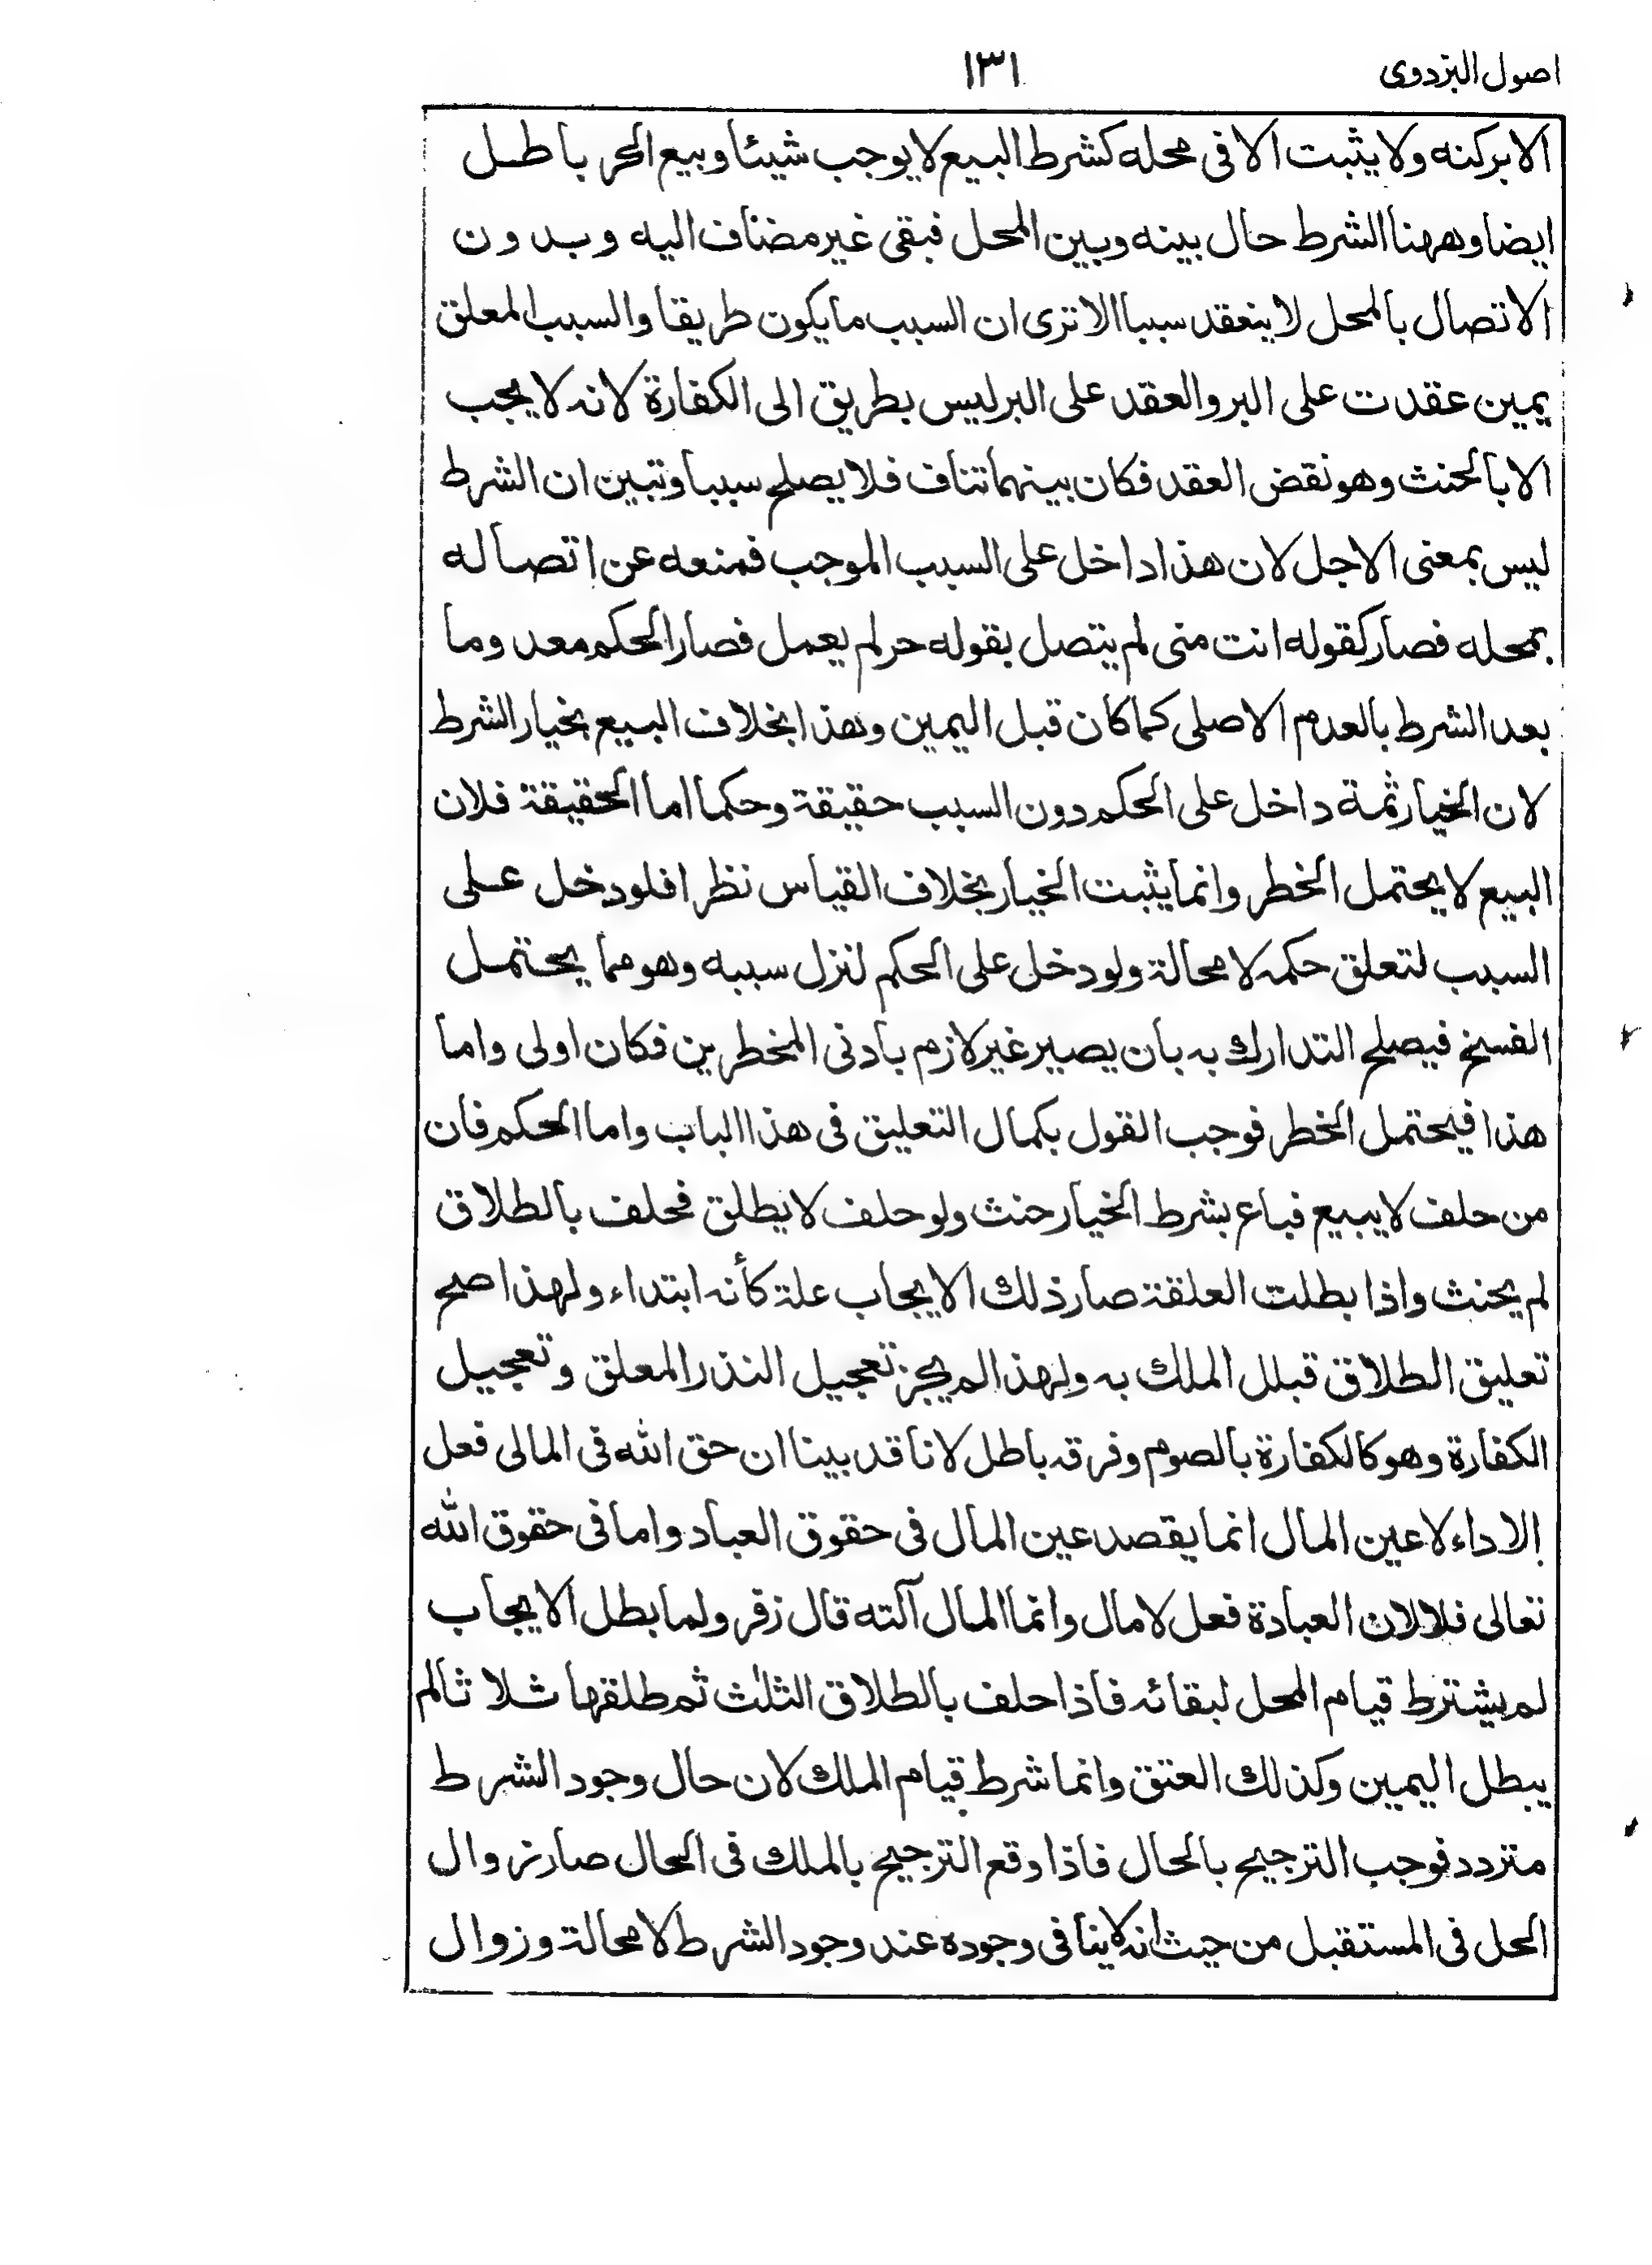 اصول البزدوى ١٣١
الا بركنه ولا يثبت الا فى محله كشرط البيع لا يوجب شيئا وبيع الحر باطل
ايضا وههنا الشرط حال بينه وبين المحل فبقى غير مضاف اليه وبدون
الاتصال بالمحل لا ينعقد سببا الا ترى ان السبب ما يكون طريقا والسبب المعلق
يمين عقدت على البر والعقد على البر ليس بطريق الى الكفارة لانه لا يجب
الا بالحنث وهو نقض العقد فكان بينهما تناف فلا يصلح سببا وتبين ان الشرط
ليس بمعنى الاجل لان هذا داخل على السبب الموجب فمنعه عن اتصاله
بمحله فصار كقوله انت منى لم يتصل بقوله حر لم يعمل فصار الحكم معدوما
بعد الشرط بالعدم الاصلى كما كان قبل اليمين وهذا بخلاف البيع بخيار الشرط
لان الخيار ثمة داخل على الحكم دون السبب حقيقة وحكما اما الحقيقة فلان
البيع لا يحتمل الخطر وانما يثبت الخيار بخلاف القياس نظرا فلو دخل على
السبب لتعلق حكمه لا محالة ولو دخل على الحكم لنزل سببه وهو مما يحتمل
الفسخ فيصلح التدارك به بان يصير غير لازم بادنى الخطرين فكان اولى واما
هذا فيحتمل الخطر فوجب القول بكمال التعليق فى هذا الباب واما الحكم فان
من حلف لا يبيع فباع بشرط الخيار حنث ولو حلف لا يطلق فحلف بالطلاق
لم يحنث واذا بطلت العلقة صار ذلك الايجاب علة كأنه ابتداء ولهذا صح
تعليق الطلاق قبلل الملك به ولهذا لم يجز تعجيل النذر المعلق وتعجيل
الكفارة وهو كالكفارة بالصوم وفرقه باطل لانا قد بينا ان حق الله فى المالى فعل
الاداء لا عين المال انما يقصد عين المال فى حقوق العباد واما فى حقوق الله
تعالى فلا لان العبادة فعل لا مال وانما المال آلته قال زفر ولما بطل الايجاب
لم يشترط قيام المحل لبقائه فاذا حلف بالطلاق الثلث ثم طلقها ثلاثا لم
يبطل اليمين وكذلك العتق وانما شرط قيام الملك لان حال وجود الشرط
متردد فوجب الترجيح بالحال فاذا وقع الترجيح بالملك فى الحال صار زوال
الحل فى المستقبل من حيث انه لا ينافى وجوده عند وجود الشرط لا محالة وزوال